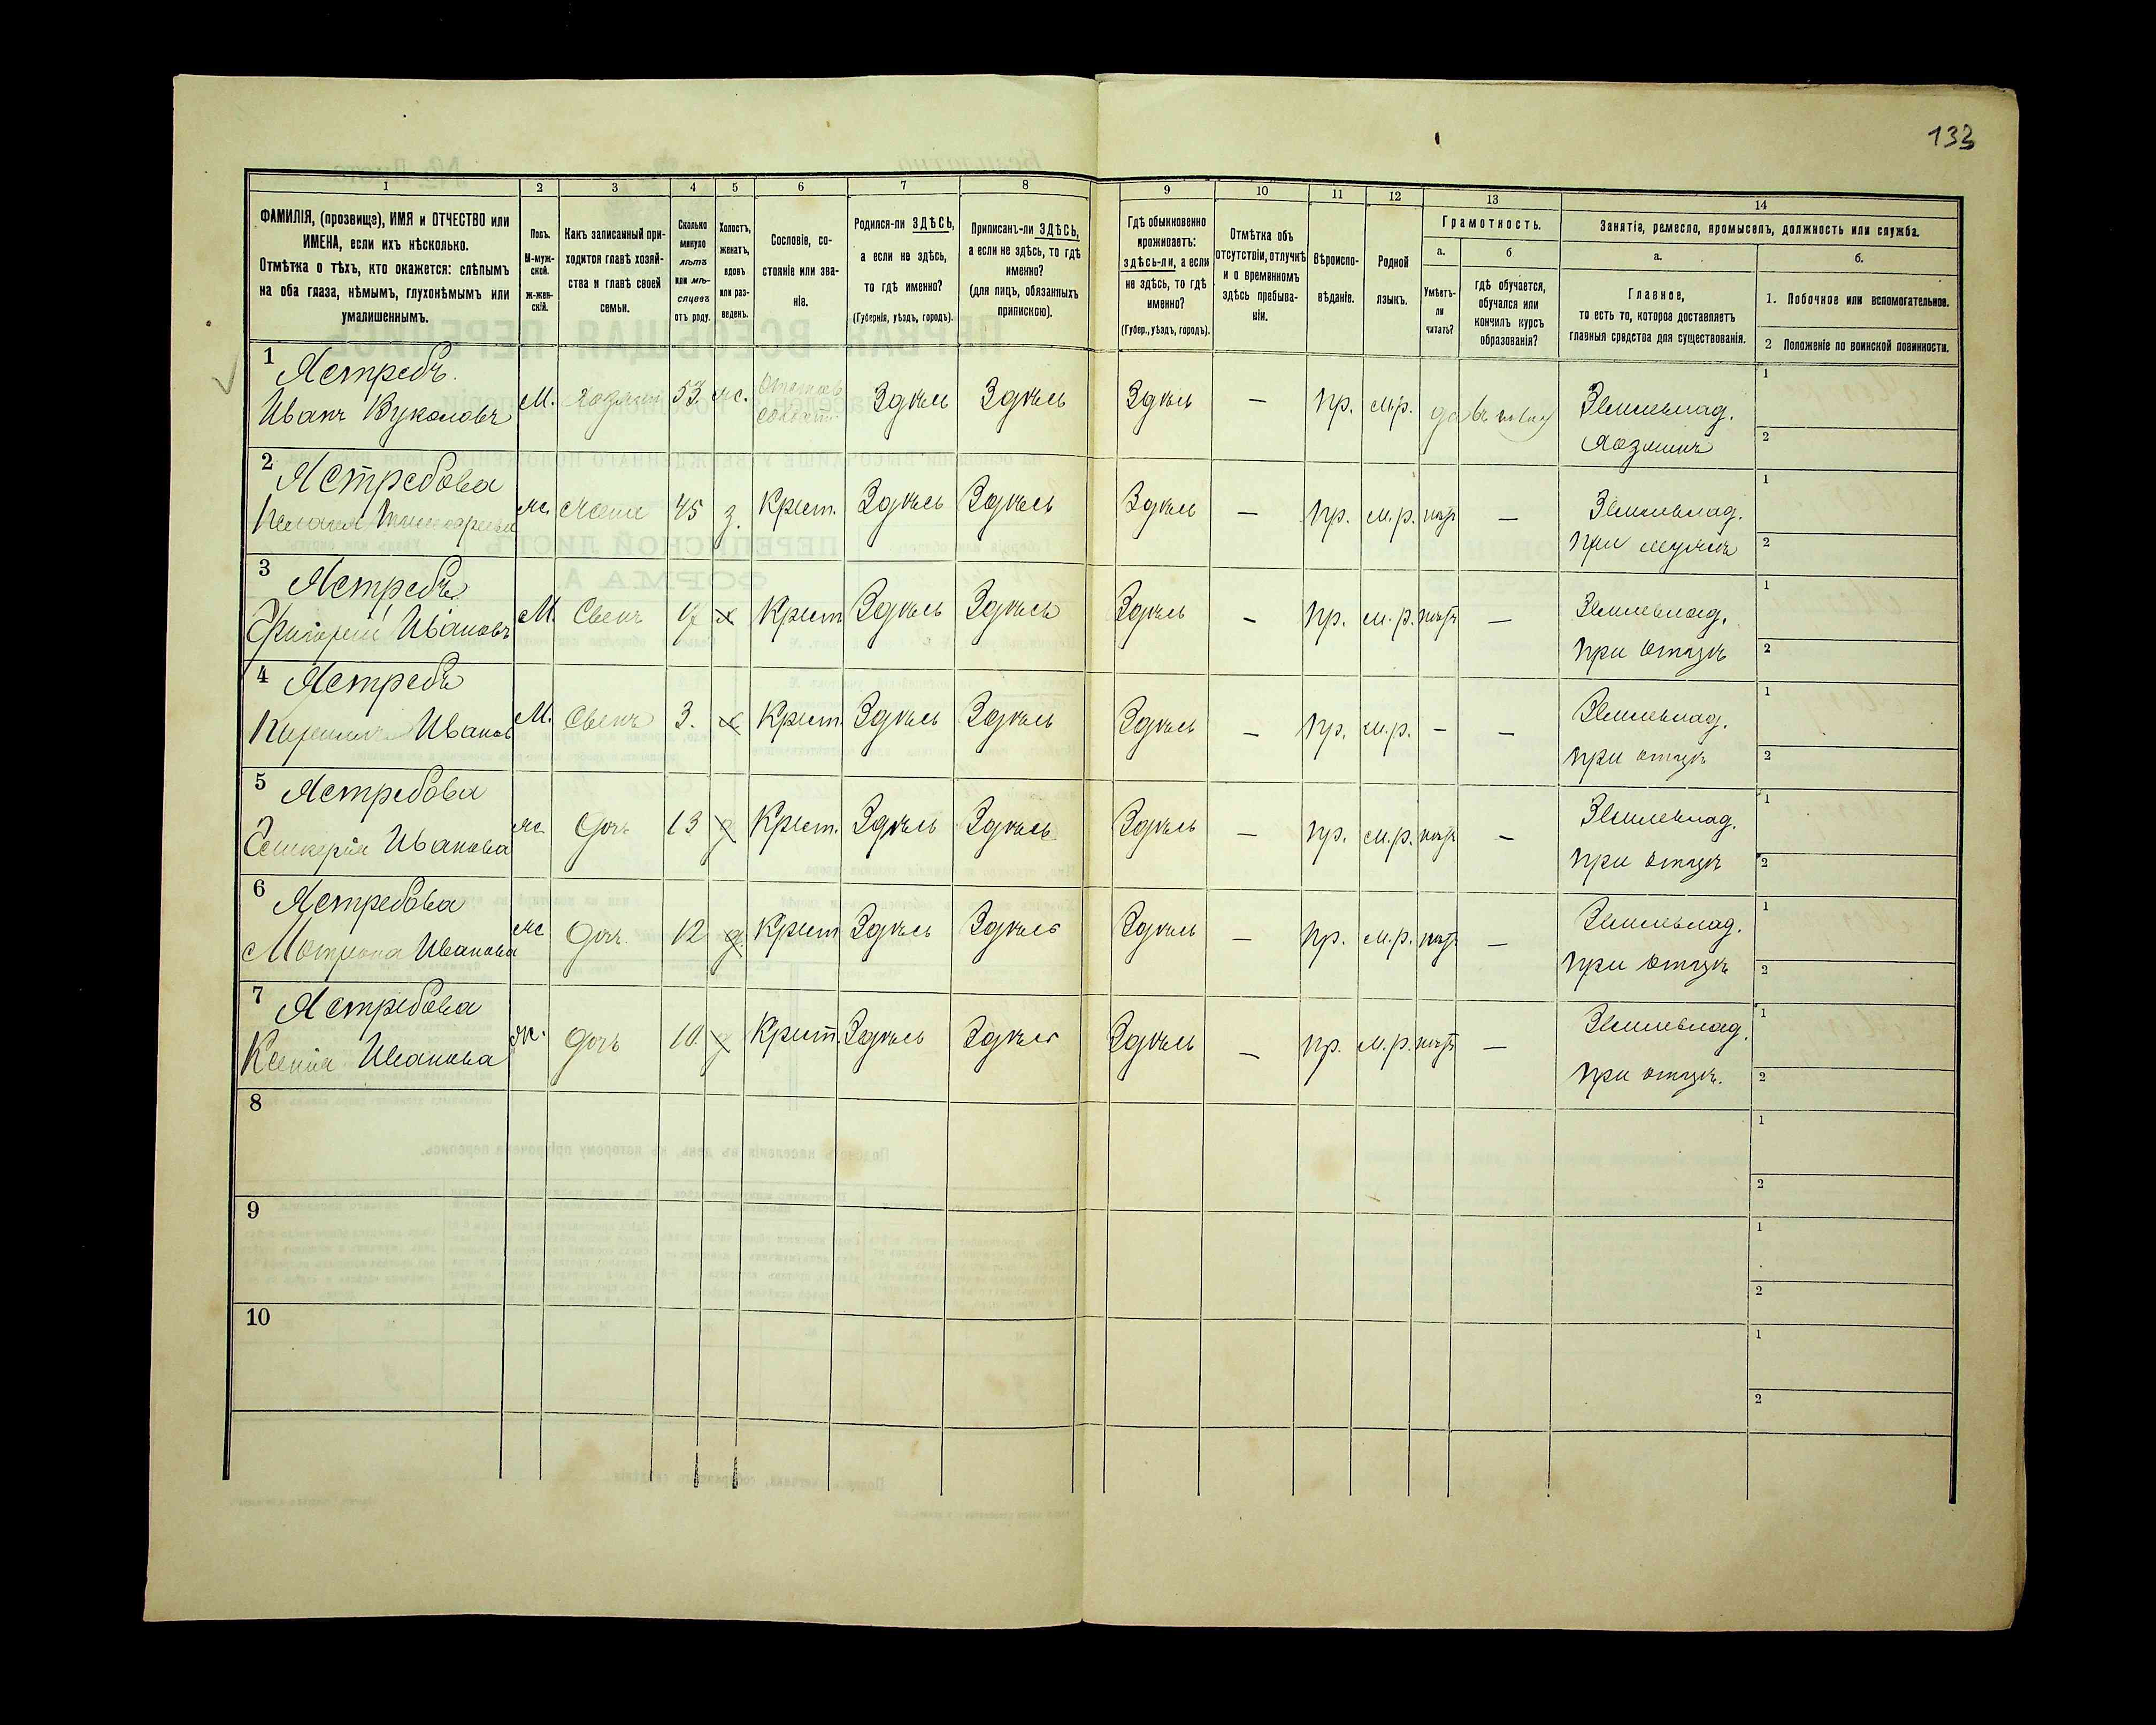 133
1 2 3 4 5 6 7 8 9 10 11 12 13 14
ФАМИЛІЯ, (прозвище), ИМЯ и ОТЧЕСТВО или
ИМЕНА, если ихъ нѣсколько.
Отмѣтка о тѣхъ, кто окажется: слѣпымъ
на оба глаза, нѣмымъ, глухонѣмымъ или
умалишеннымъ.
Полъ.
М-муж-
ской.
ж-жен-
скій.
Какъ записанный при-
ходится главѣ хозяй-
ства и главѣ своей
семьи.
Сколько
минуло
лѣтъ
или мѣ-
сяцевъ
отъ роду.
Холостъ,
женатъ,
вдовъ
или раз-
веденъ.
Сословіе, со-
стояніе или зва-
ніе.
Родился-ли ЗДѢСЬ,
а если не здѣсь,
то гдѣ именно?
(Губернія, уѣздъ, городъ).
Приписанъ-ли ЗДѢСЬ,
а если не здѣсь, то гдѣ
именно?
(для лицъ, обязанныхъ
припискою).
Гдѣ обыкновенно
проживаетъ:
здѣсь-ли, а если
не здѣсь, то гдѣ
именно?
(Губер., уѣздъ, городъ).
Отмѣтка объ
отсутствіи, отлучкѣ
и о временномъ
здѣсь пребыва-
ніи.
Вѣроиспо-
вѣданіе.
Родной
языкъ.
Грамотность.
а.
Умѣетъ-
ли
читать?
б
гдѣ обучается,
обучался или
кончилъ курсъ
образованія?
Занятіе, ремесло, промыселъ, должность или служба.
а.
Главное,
то есть то, которое доставляетъ
главныя средства для существованія.
б.
1. Побочное или вспомогательное.
2 Положеніе по воинской повинности.
1 Ястребъ
Иванъ Вуколовъ М. Хозяинъ 53 ж. Здѣсь Здѣсь Здѣсь — пр. м.р. да Землевлад. 1
Хозяинъ 2
2 Ястребова
ж. жена 45 з. Крест. Здѣсь Здѣсь Здѣсь — пр. м.р. нѣтъ — Землевлад. 1
при мужѣ 2
3 Ястребъ
Григорій Ивановъ М. Сынъ х Крест Здѣсь Здѣсь Здѣсь - пр. м.р. нѣтъ — Землевлад. 1
при отцѣ 2
4 Ястребъ
Кириллъ Иванов М. Сынъ 3. х Крест. Здѣсь Здѣсь Здѣсь — пр. м.р. - - Землевлад. 1
при отцѣ 2
5 Ястребова
Иванова ж. дочь 13 д Крест. Здѣсь Здѣсь Здѣсь — пр. м.р. нѣтъ - Землевлад. 1
при отцѣ 2
6 Ястребова
Мотрона Иванова ж дочь 12 д. Крест Здѣсь Здѣсь Здѣсь — пр. м.р. нѣтъ — Землевлад. 1
при отцѣ 2
7 Ястребова
Ксенія Иванова ж. дочь 10. д Крест. Здѣсь Здѣсь Здѣсь — пр. м.р. нѣтъ — Землевлад. 1
при отцѣ. 2
8 1
2
9 1
2
10 1
2